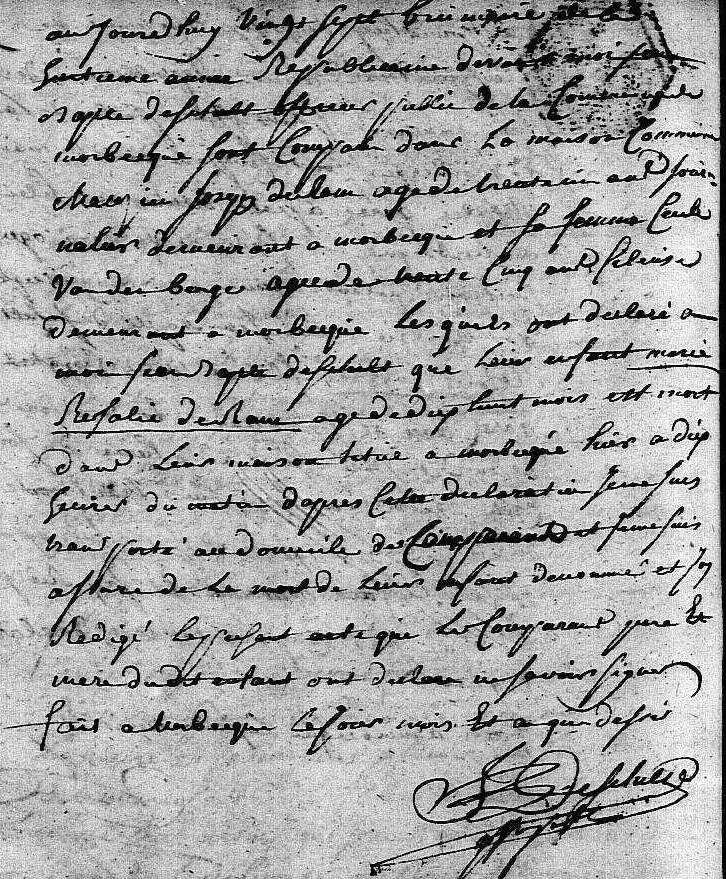 aujourdhuy vingt sept brumaire de la
huitieme année Respublicaine devant moi jean
Bapte deschult officier publie de la Commune de
morbecque sont Comparu dans La maison Commune
josep agé de trente un ans jour
nalier demeurant a morbecque et sa femme Cecile
Vanden berge agee de trente Cinq ans fileuse
demeurant a morbecque Lesquels ont declaré a
moi jean Bapte deschult que Leur enfant marie
Rosalie agé de dix huit mois est mort
dans Leur maison situé a morbecque hier a dix
heures du matin d'apres Cette declaration je me suis
transporté au domicile de Comparants et je me suis
assuré de Le mort de Leur enfant denommé et j'ai
Redigé Le present acte que Les Comparant pere Et
mere dudit enfant ont declare ne savoir signer
fait a Morbecque Les jour mois Et an que dessus
Deschult